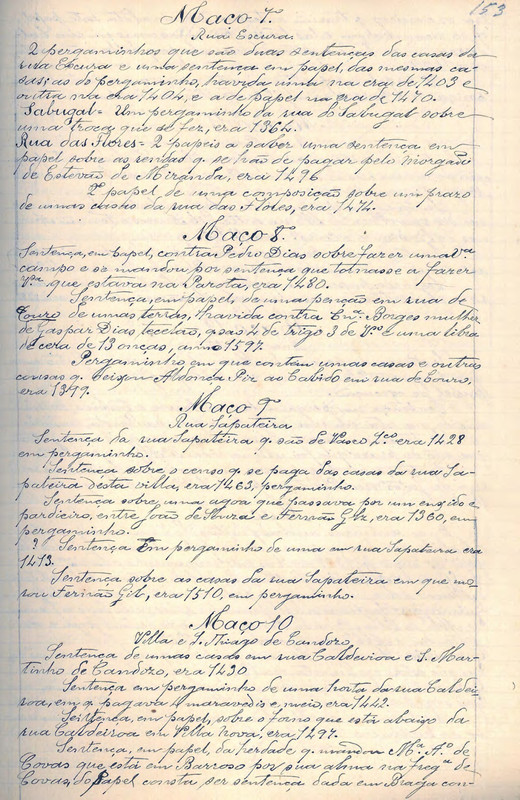 153
Maço 7.
Rua Escura
2 pergaminhos que são duas sentenças das casas da
rua Escura e uma sentença em papel, das mesmas ca-
sas; as do pergaminho, havida uma na era de 1403 e
outra na era 1404, e a de papel na era de 1470.
Sabugal = Um pergaminho da rua do Sabugal sobre
uma troca que se fez, era 1364.
Rua das Flores = 2 papeis a saber uma sentença em
papel sobre as rendas q. se hão de pagar pelo morgado
de Estevão de Miranda, era 1496
2º papel de uma composição sobre um prazo
de umas casas da rua das Flores, era 1474.
Maço 8.
Sentença, em papel, contra Pedro Dias sobre fazer uma vª
campo e se mandou por sentença que tornasse a fazer
vª que estava na Parota, era 1480.
Sentença, em papel, de uma penção em rua de
Couro de umas terras, havida contra Borges mulher
de Gaspar Dias, tecelão, q são 4 de trigo 3 de e uma libra
de cera de 13 onças, anno 1597.
Pergaminho em que contem umas casas e outras
cousas q. deixou Aldonça Piz ao Cabido em rua de Couro,
era 1349.
Maço 9
Rua Sapateira
Sentença da rua Sapateira q. são de Vasco Lço era 1428
em pergaminho.
Sentença sobre o censo q. se paga das casas da rua Sa-
pateira desta villa, era 1463, pergaminho.
Sentença sobre uma agoa que passava por um enxido e
pardieiro, entre João de Souza e Fernão Glz, era 1360, em
pergaminho.
? Sentença em pergaminho de uma em rua Sapateira era
1413.
Sentença sobre as casas da rua Sapateira em que mo-
rou Fernão Gil, era 1510, em pergaminho.
Maço 10
Villa e S. Thiago de Candozo
Sentença de umas casas em rua Caldeiroa e S. Mar-
tinho de Candozo, era 1430
Sentença em pergaminho de uma horta da rua Caldei-
roa, em q. pagava 4 maravedis e meio, era 1442.
Sentença, em papel, sobre o forno que está abaixo da
rua Caldeiroa em Villa Nova, era 1497.
Sentença, em papel, da herdade q. mandou Mª Aº de
Covas que está em Barroso por sua alma na fregª de
Covas, do papel consta ser sentença dada em Braga con-